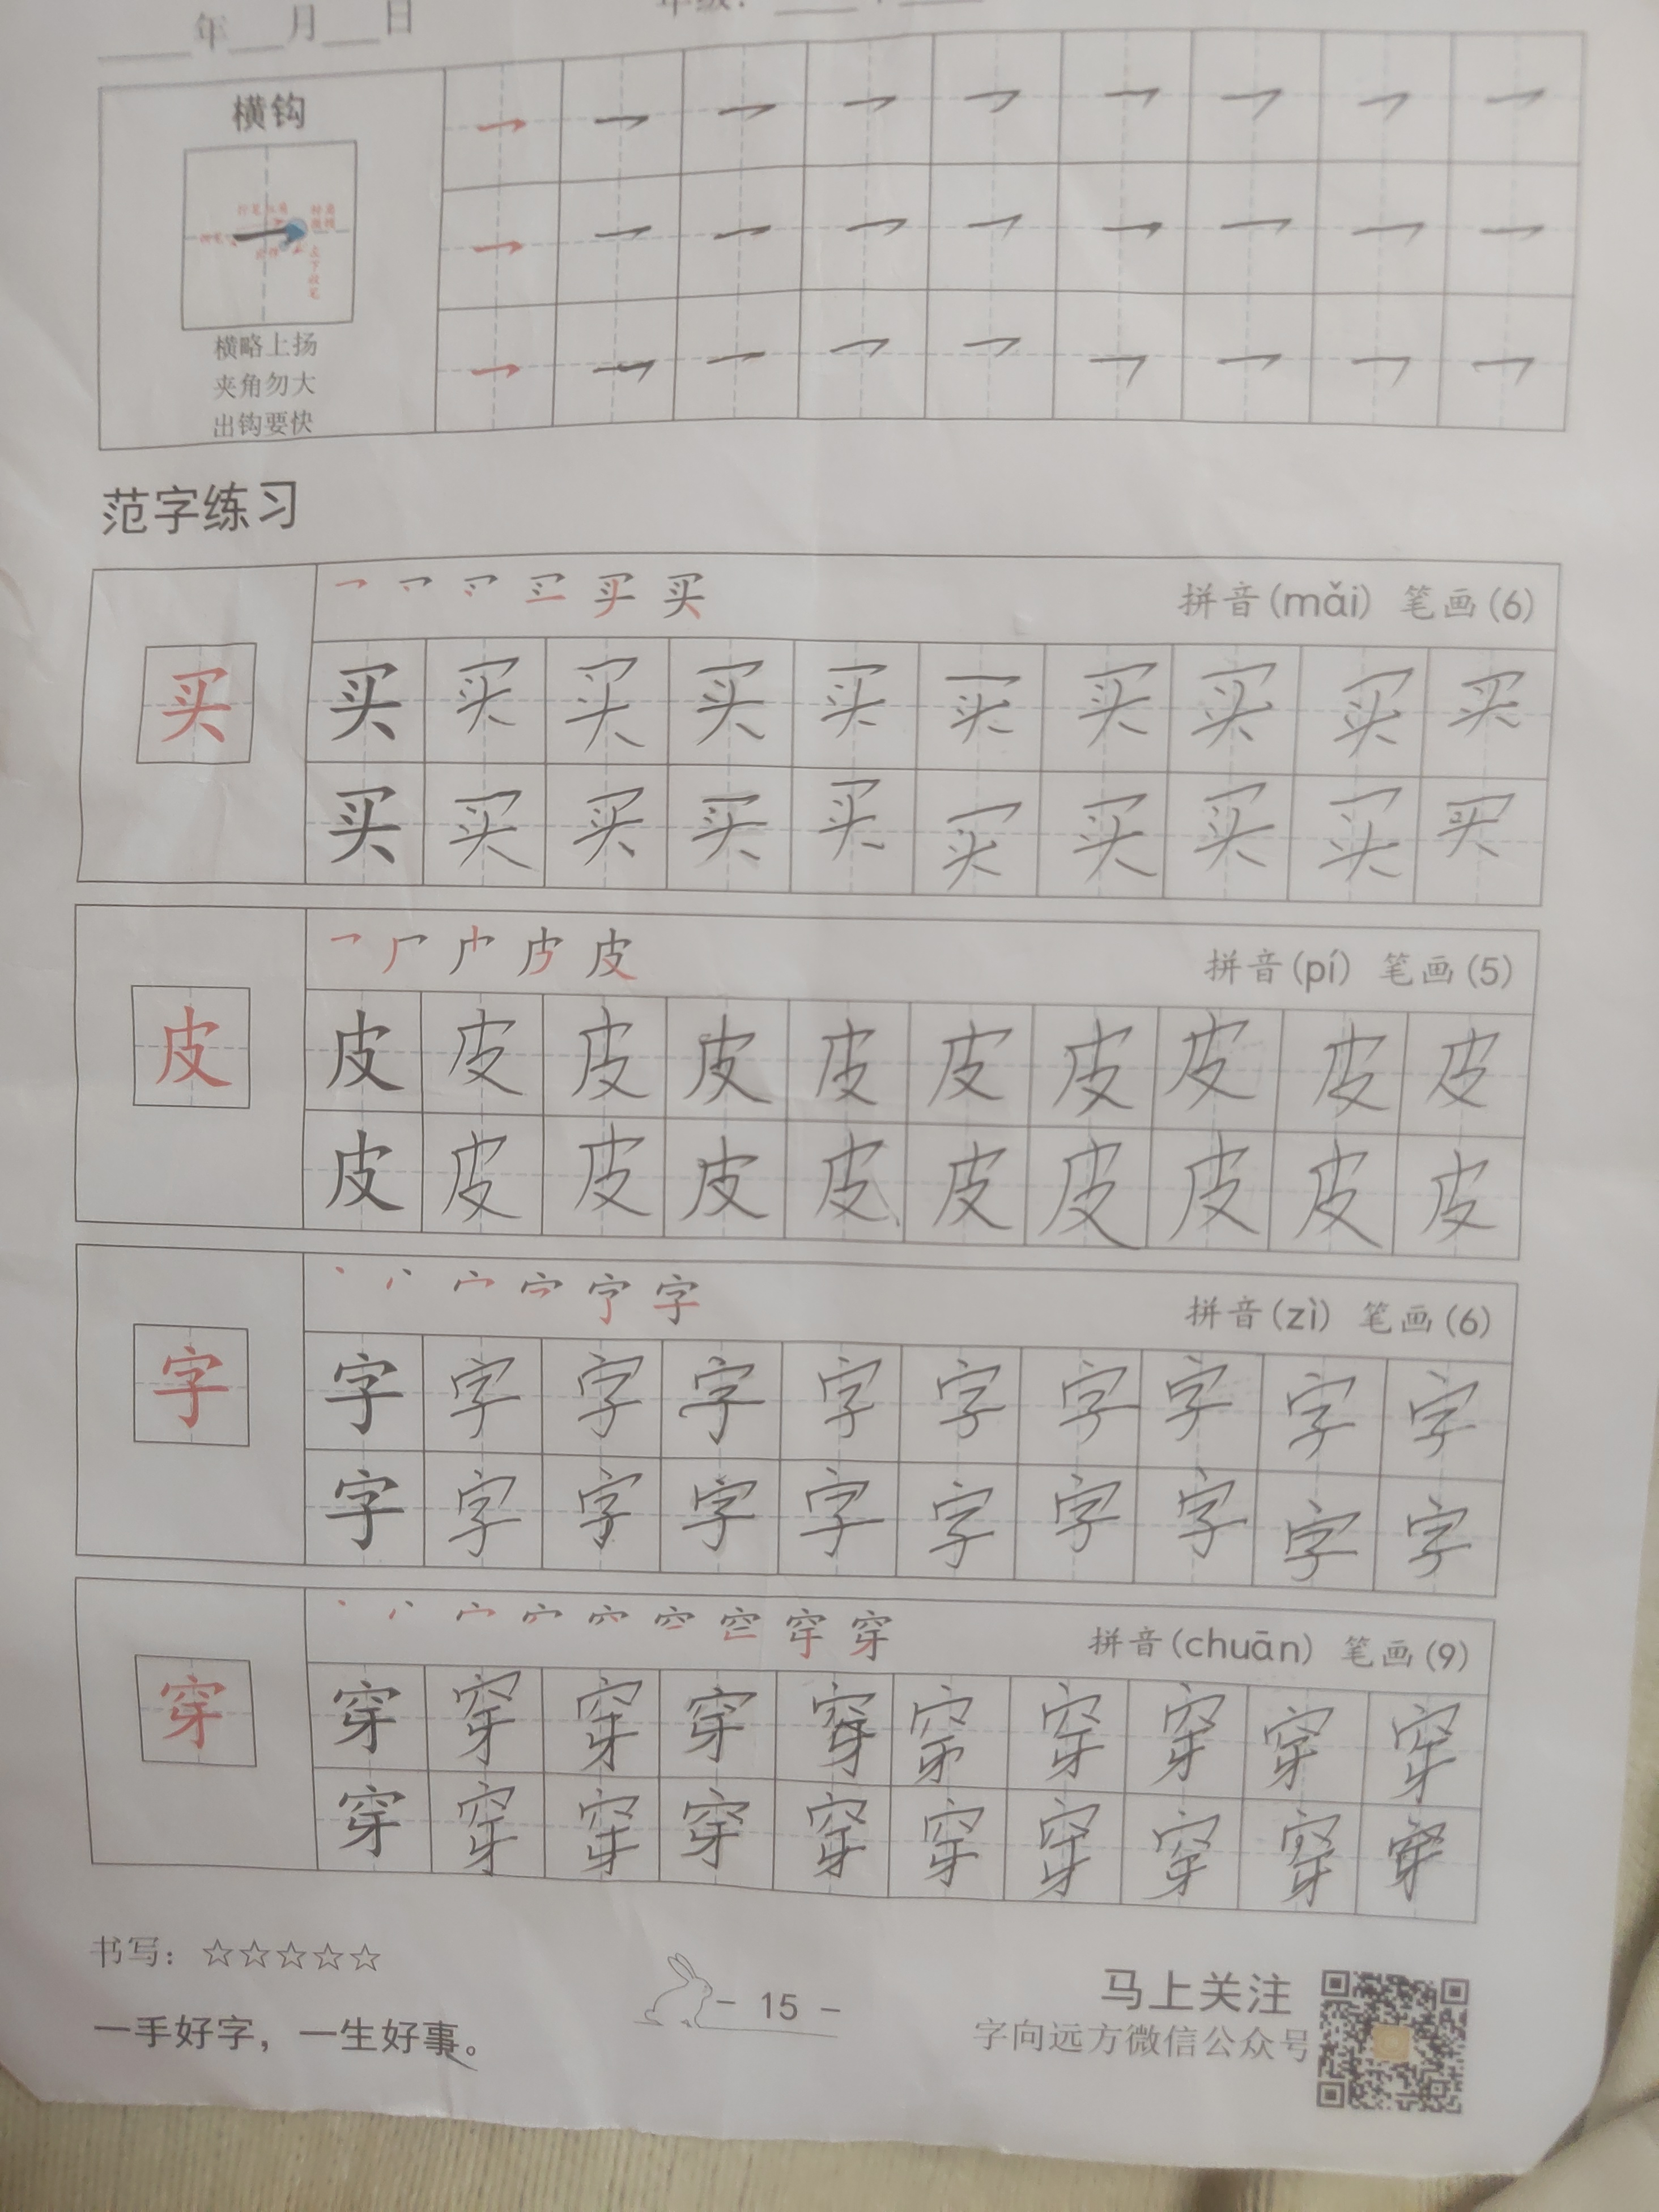 年 月 日
横钩
横略上扬
夹角勿大
出钩要快
范字练习
买 拼音(mǎi) 笔画(6)
买 买 买 买 买 买 买 买 买 买 买
买 买 买 买 买 买 买 买 买 买
皮 拼音(pí) 笔画(5)
皮 皮 皮 皮 皮 皮 皮 皮 皮 皮 皮
皮 皮 皮 皮 皮 皮 皮 皮 皮 皮
字 拼音(zì) 笔画(6)
字 字 字 字 字 字 字 字 字 字 字
字 字 字 字 字 字 字 字 字 字
穿 拼音(chuān) 笔画(9)
穿 穿 穿 穿 穿 穿 穿 穿 穿 穿 穿
穿 穿 穿 穿 穿 穿 穿 穿 穿 穿
书写：☆☆☆☆☆
一手好字，一生好事。
- 15 -
马上关注
字向远方微信公众号